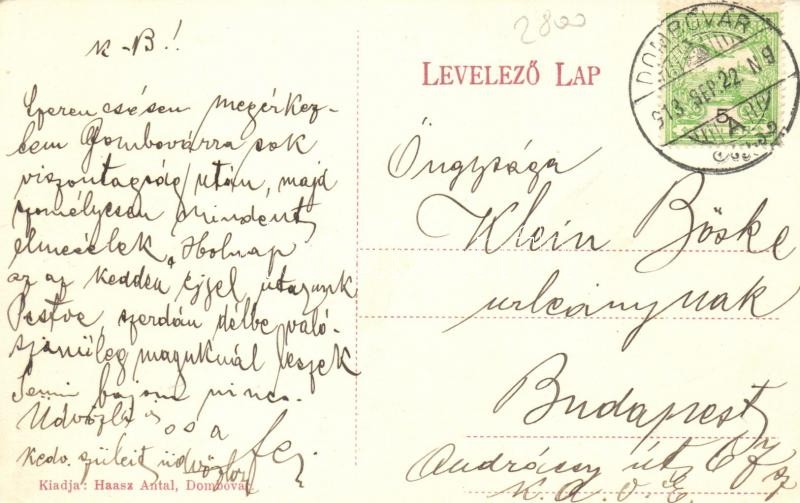 2800
K-B!!
Szerencsésen megérkez-
tem Dombovárra sok
viszontagság után, majd
személyesen mindent
elmesélek. Holnap
az az kedden éjjel utazunk
Pestre, szerdán délbe való-
színüleg maguknál leszek
Semi bajom nincs.
Üdvözli és
kedv. szüleit üdvözlöm
Kiadja: Haasz Antal, Dombóvár.
LEVELEZŐ LAP
DOMBÓVÁR
913 SEP. 22 N 9
5
Öngysága
Klein Böske
urleánynak
Budapest
Andrássy út